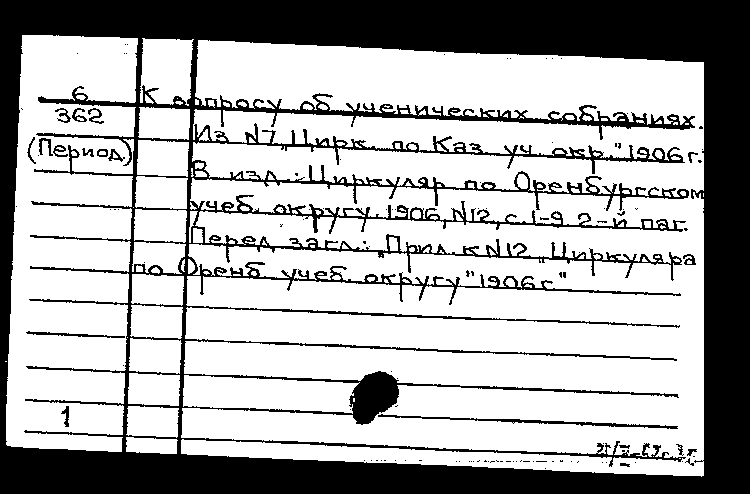 6 К вопросу об ученических собраниях.
362
Из N7 „Цирк. по Каз. уч. окр." 1906 г.
(Период)
В изд.: Циркуляр по Оренбургском
учеб. округу. 1906, N12, с. 1-9 2-й паг.
Перед загл.: „Прил. к N12 „Циркуляра
по Оренб учеб. округу" 1906 г."
1